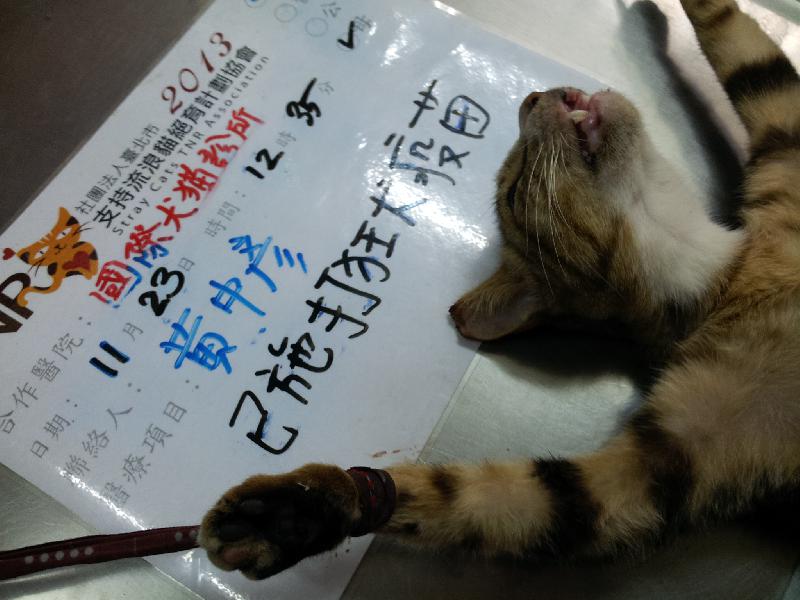 2013
社團法人臺北市
支持流浪貓絕育計劃協會
Stray Cats TNR Association
合作醫院：國際犬猫診所
日期：11月23日 時間：12時35分
聯絡人：黃中彥
醫療項目：
已施打狂犬疫苗
公